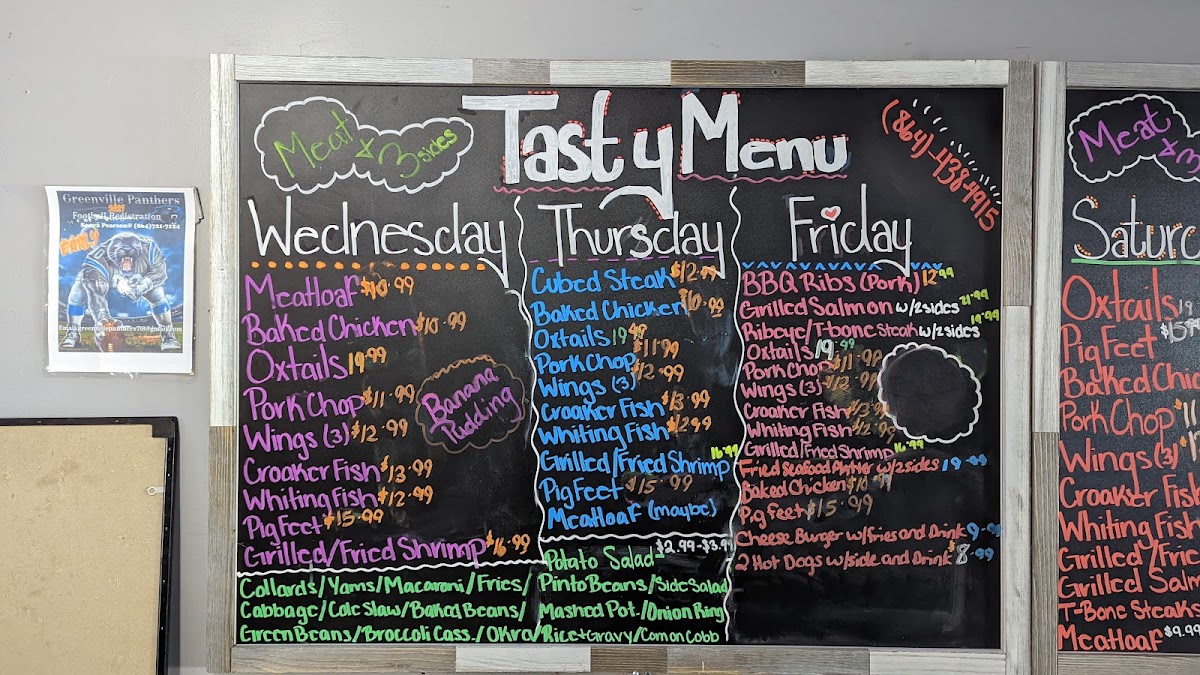 Greenville Panthers
2021
Football Registration
Sonya Pearson# (864)721-7124
EARLY
Email:greenvillepanthers718@gmail.com
Meat
& 3 sides
Tasty Menu
(864)-438-4915
Wednesday
Meatloaf $10.99
Baked Chicken $10.99
Oxtails 19.99
Pork Chop $11.99
Wings (3) $12.99
Croaker Fish $13.99
Whiting Fish $12.99
Pig Feet $15.99
Grilled/Fried Shrimp $16.99
Banana
Pudding
Thursday
Cubed Steak $12.99
Baked Chicken $10.99
Oxtails 19.99
Pork Chop $11.99
Wings (3) $12.99
Croaker Fish $13.99
Whiting Fish $12.99
Grilled/Fried Shrimp 16.99
Pig Feet $15.99
Meatloaf (maybe)
Friday
BBQ Ribs (Pork) 12.99
Grilled Salmon w/2sides 21.99
Ribeye/T-bone Steak w/2sides 19.99
Oxtails 19.99
Pork Chop $11.99
Wings (3) $12.99
Croaker Fish $13.99
Whiting Fish $12.99
Grilled/Fried Shrimp 16.99
Fried Seafood Platter w/2sides 19.99
Baked Chicken $10.99
Pig Feet $15.99
Cheese Burger w/fries and Drink 9.99
2 Hot Dogs w/side and Drink $8.99
Potato Salad $2.99-$3.99
Collards/Yams/Macaroni/Fries/ Pinto Beans/Side Salad
Cabbage/Cole Slaw/Baked Beans/ Mashed Pot./Onion Ring
Green Beans/Broccoli Cass./Okra/Rice+Gravy/Corn on Cobb
Meat
& 3
Saturd
Oxtails 19
Pig Feet $15.9
Baked Chic
Pork Chop $1
Wings (3) $1
Croaker Fish
Whiting Fish
Grilled/Frie
Grilled Salm
T-Bone Steaks
Meatloaf $9.99